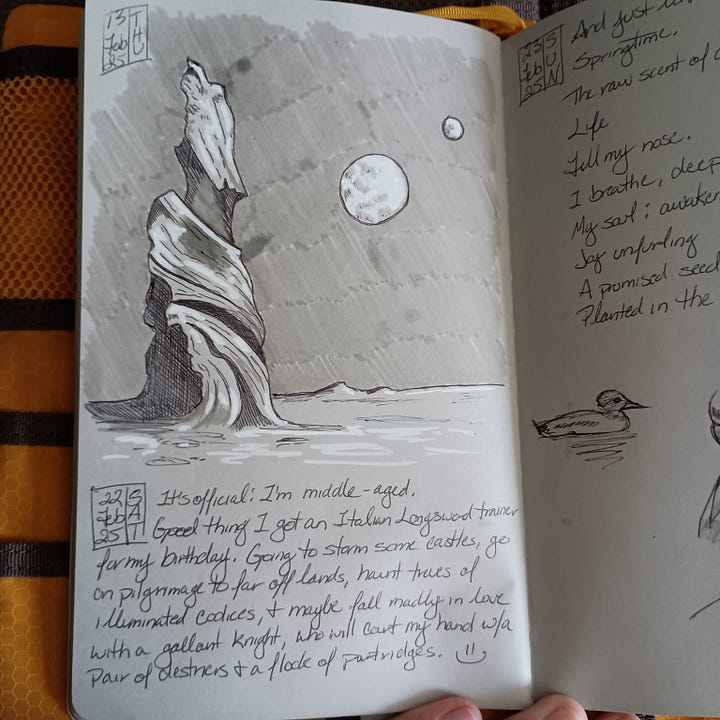 13 Feb 25 THU
22 Feb 25 SAT
It's official: I'm middle-aged.
Good thing I got an Italian Longsword trainer
for my birthday. Going to storm some castles, go
on pilgrimage to far off lands, haunt troves of
illuminated codices, & maybe fall madly in love
with a gallant knight, who will court my hand w/a
pair of destriers & a flock of partridges.
23 Feb 25 SUN
And just
Springtime.
The raw scent of
Life
Fill my nose.
I breathe, deep
My soul: awaken
Joy unfurling
A promised seed
Planted in the